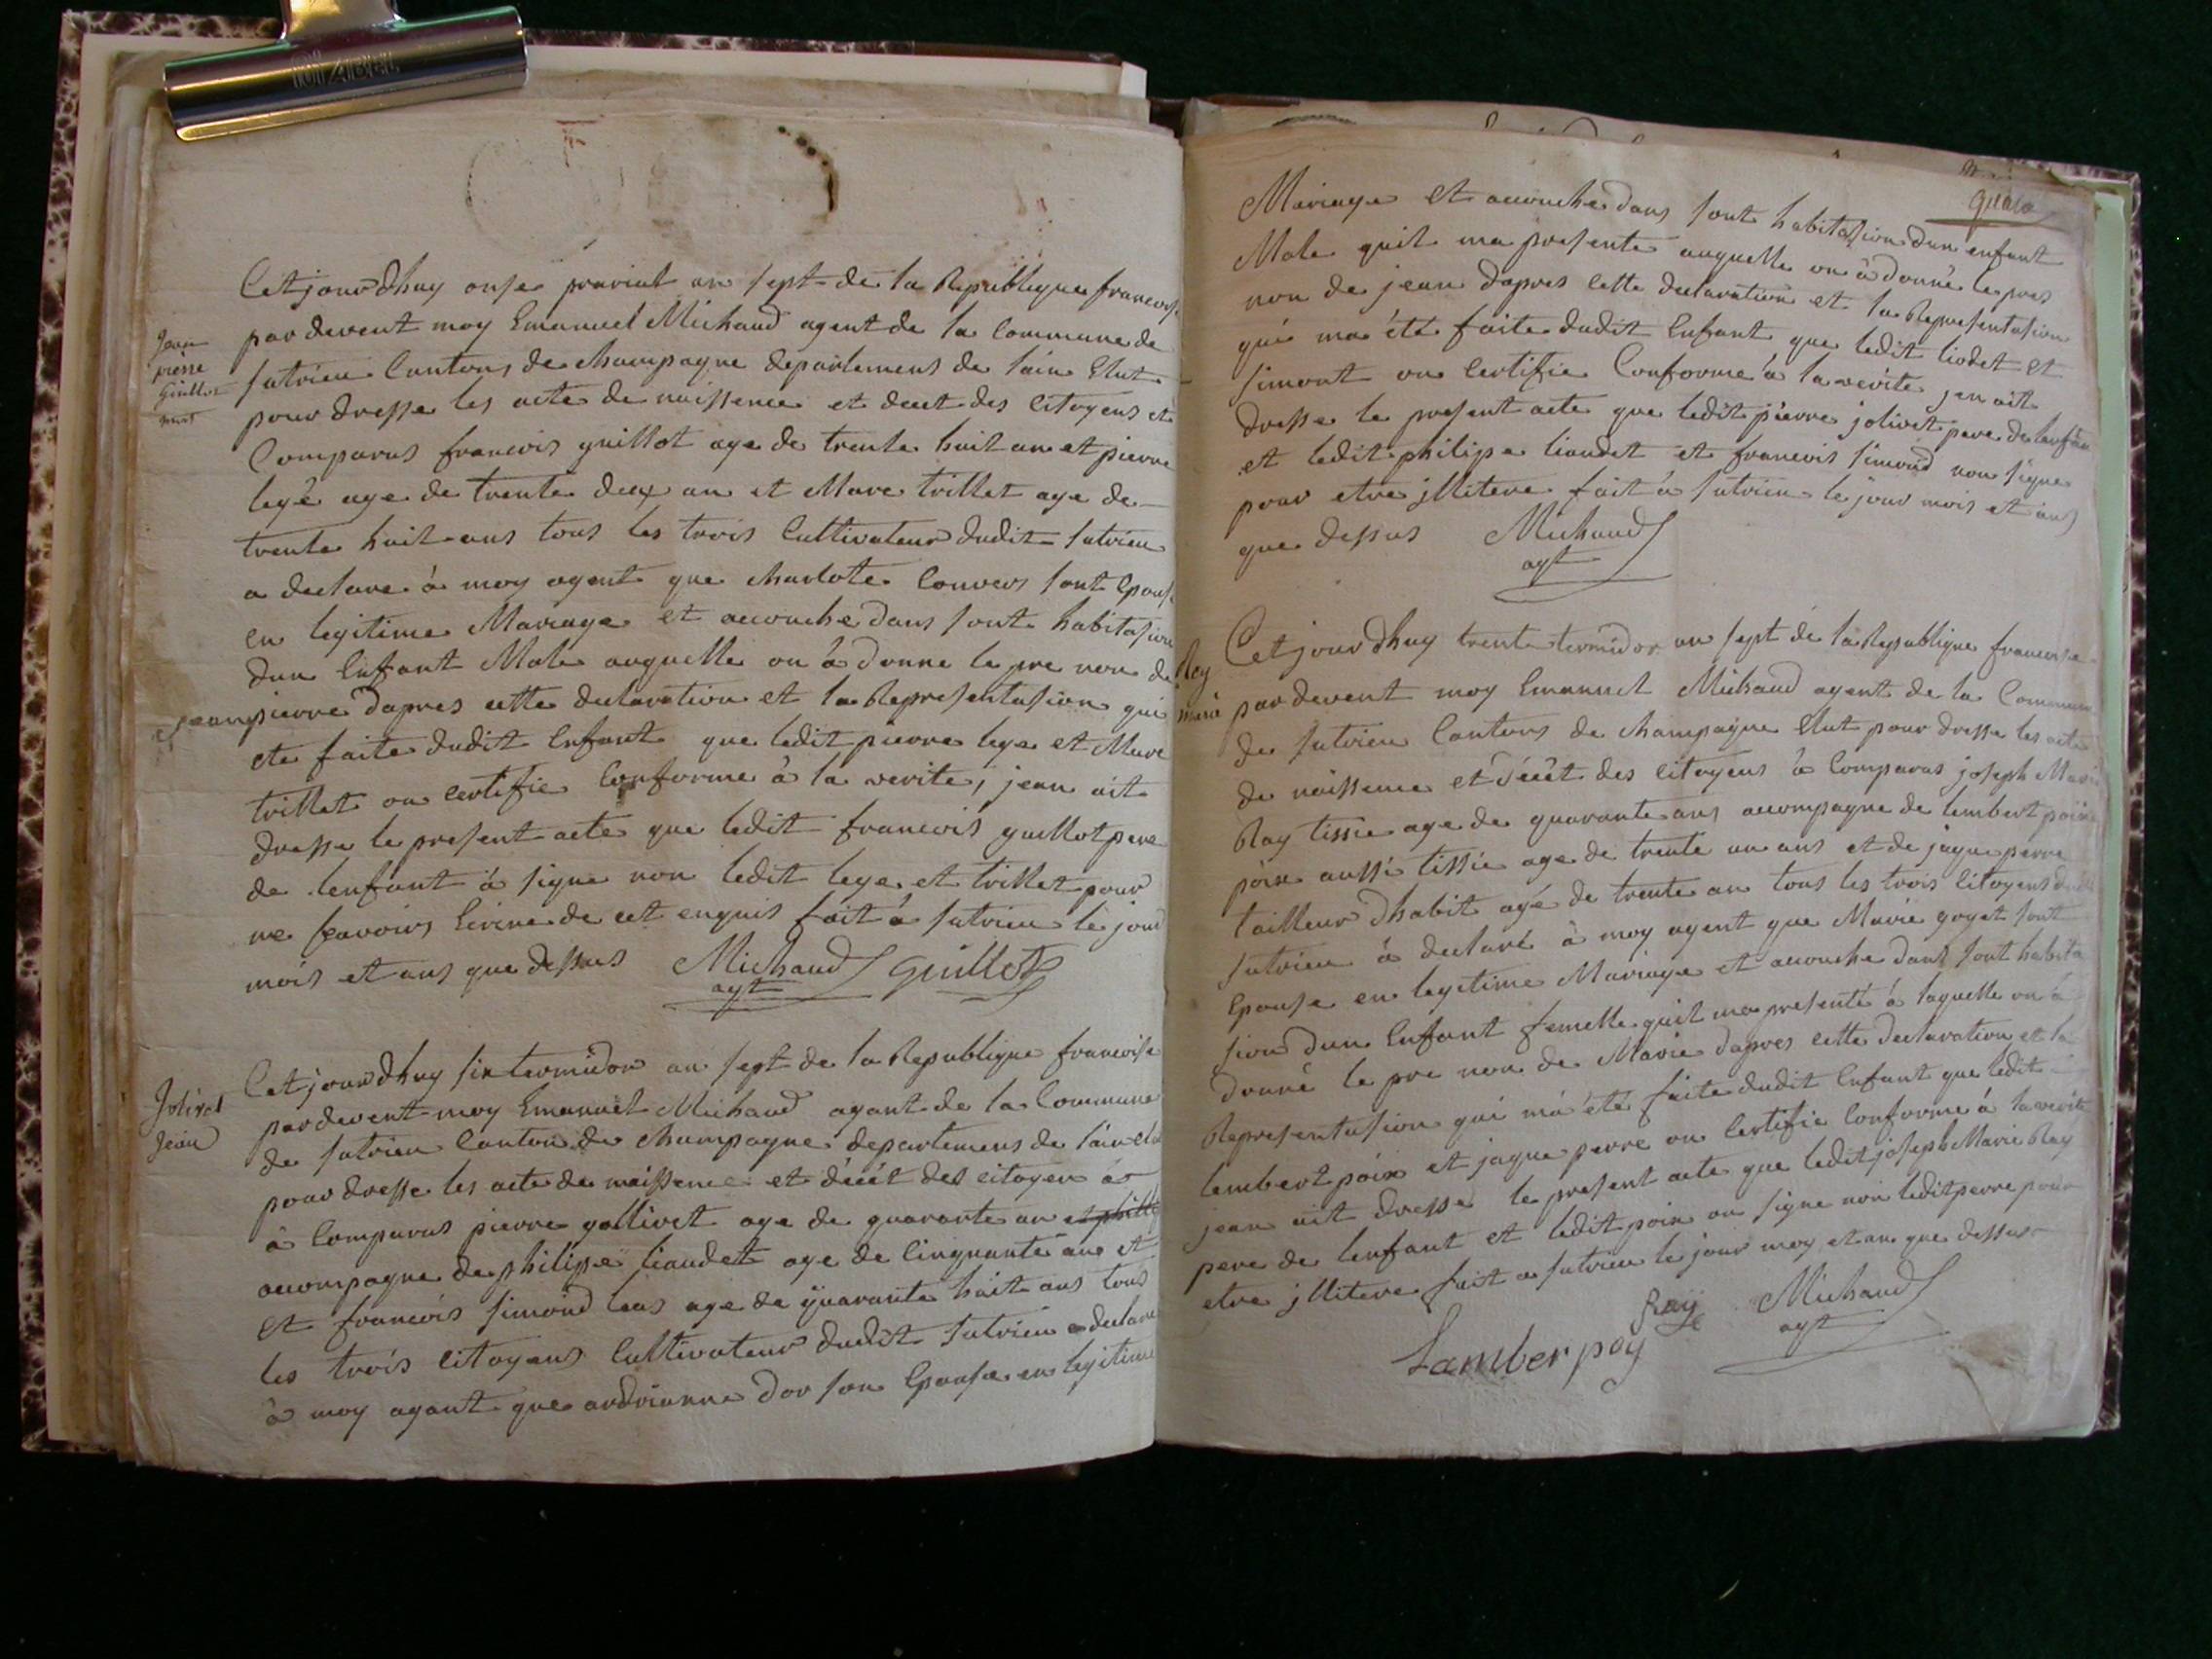 Jean
pierre
Guillot
Cet jourdhuy onse preriat an sept de la Republique francois
par devent moy Emanuel Michaud agent de la Commune de
sutrieu Cantons de champagne departemens de lain Elut
pour dresse les acte de naissence et decet des Citoyens et
Comparus francois guillot age de trente huit an et pierre
legé age de trente deux an et Marc trillet age de
trente huit ans tous les trois Cultivateur dudit sutrieu
a declare à moy agent que charlote Convers sont Epouse
en legitime Mariage et acouche dans sont habitasion
dun Enfant Male auquelle on à donne le pre non de
jeanpierre dapres cette declaration et la Representasion qui
ete faite dudit Enfant que ledit pierre lege et Marc
trillet on Certifie Conforme à la verite, jean ait
dresse le present acte que ledit francois guillot pere
de lenfant à signe non ledit lege et trillet pour
ne scavoirs Ecrire de cet enquis fait à sutrieu le jour
mois et ans que dessus Michaud Guillot
agt
Jolivet
Jean
Cet jourdhuy six termidor an sept de la Republique francoise
par devent moy Emanuel Michaud agant de la Commune
de sutrieu Canton de champagne departemens de lain elut
pour dresse les acte de naissence et décét des citoyen à
à Comparus pierre gollivet age de quarante an et phille
acompagne de philipe liaudet age de Cinquante ane et
et francois simond age de quarante huit ans tous
les trois citoyens Cultivateur dudit sutrieu a declare
à moy agant que ardrianne dor son Epouse en legitime
Mariage et acouche dans sont habitasion dun enfant
Male quil ma presente auquelle on à donné le pres
non de jean dapres cette declaration et la Representasion
qui ma été faite dudit Enfant que ledit liodet et
simont on Certifie Conforme à la verite jen ait
dresse le present acte que ledit pierre jolivet pere de lenfan
et ledit philipe liaudet et francois simond non signe
pour etre jllitere fait à sutrieu le jour mois et ans
que dessus Michaud
agt
Rey
marie
Cet jourdhuy trente termidor an sept de la Republique francoise
par devent moy Emanuel Michaud agent de la Commune
de sutrieu Cantons de champagne Elut pour dresse les acte
de naissence et décét des citoyens à Comparus joseph Marie
Ray tissie age de quarante ans acompagne de lembert poin
poix aussi tissie age de trente un ans et de jaque perre
tailleur dhabit agé de trente an tous les trois Citoyens dudit
sutrieu à declaré à moy agent que Marie goyet sont
Epouse en legitime Mariage et acouche dans sont habita
sion dun Enfant femelle quil ma presenté à laquelle on à
donné le pre non de Marie dapres cette declaration et la
Representasion qui má été faite dudit Enfant que ledit
lembert poix et jaque perre on Certifie Conforme à la verite
jean ait dresse le present acte que ledit joseph Marie Rey
pere de lenfant et ledit poix on signe non ledit perre pour
etre jllitere fait a sutrieu le jour moy et an que dessus
Reÿ Michaud
agt
Lamber poy